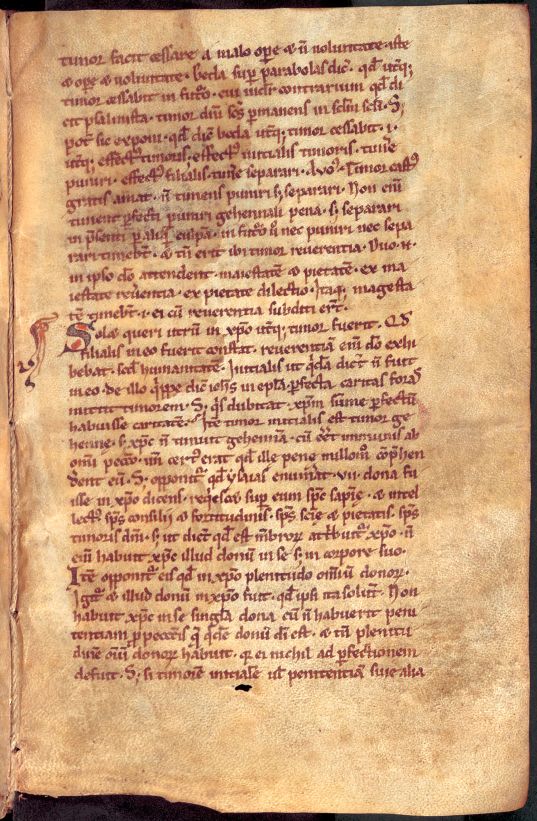 timor facit cessare a malo opere & n̄ voluntate. iste
& ope & voluntate. beda sup parabolas dic̄. qd̓ utq;
timor cessabit in fut̓o. cui uidet̓ contrarium qd̓ di
cit psalmista. timor dn̄i sc̄s pmanens in sclm̄ scl̓i. S;
pot̓ sic exponi. qd̓ dic̄ beda utq; timor cessabit .i.
utq; effect̓ timoris. effect̓ initialis timoris. timē
puniri. effect̓ filialis. timē separari. Timor cast̓
gratis amat. n̄ timens puniri s; separari. Non eni̅
timent pfecti puniri gehennali pena. s; separari
in p̄senti p aliq̓ culpa. in fut̓o ū nec puniri nec sepa
rari timebt̄. & tn̄ erit ibi timor reuerentia.
in ipso dō attendent. maiestatē & pietatē. ex ma
iestate reu̓entia. ex pietate dilectio. Itaq; magesta
tē timebt̄ .i. ei cū reuerentia subditi er̄t.
Solȩ queri utrū in xp̄o utq; timor fuerit. Qd̓
filialis in eo fuerit constat. reuerentiā eni̅ dō exhi
bebat. scd̓m humanitatē. Initialis ut q̓dā dicn̄t n̄ fuit
in eo. de illo q̓ppe dic̄ ioh̄s in epl̓a. pfecta caritas foras
mittit timorem. S; q̓s dubitat xp̄m sūme pfectā
habuisse caritatē. Itē timor initialis est timor ge
henne. s; xp̄c n̄ timuit gehennā. cū eēt inmunis ab
omi̅ pecc̄o. cert̓ erat qd̓ ille pene nullom̓ cōp̄hen
derent eū. S; opponit̓ qd̓ ysaias enumat̓ .vii. dona fu
isse in xp̄o dicens. reqescet sup eum sp̄c sapiē. & intel
lect̓. sp̄s consilij & fortitudinis. sp̄s sciē & pietatis. sp̄s
timoris dn̄i. s; ut dict̓ qd̓ est mb̄ror̓ attribuit̓ xp̄o. n̄
eni̅ habuit xp̄c illud donū in se s; in corpore suo.
Itē opponit̓ eis qd̓ in xp̄o plenitudo om̄iū donor̓.
Igit̓ & illud donū in xp̄o fuit. qd̓ ipsi ita soluūt. Non
habuit xp̄c in se singl̓a dona cū n̄ habuerit peni
tentiam p peccatis q̓ q̓dē donū di̅ est. & tn̄ plenitu
dinē om̄iū donor̓ habuit. q̓ ei nichil ad pfectionem
defuit. S; si timorē initialē ul̓ penitentiā siue alia